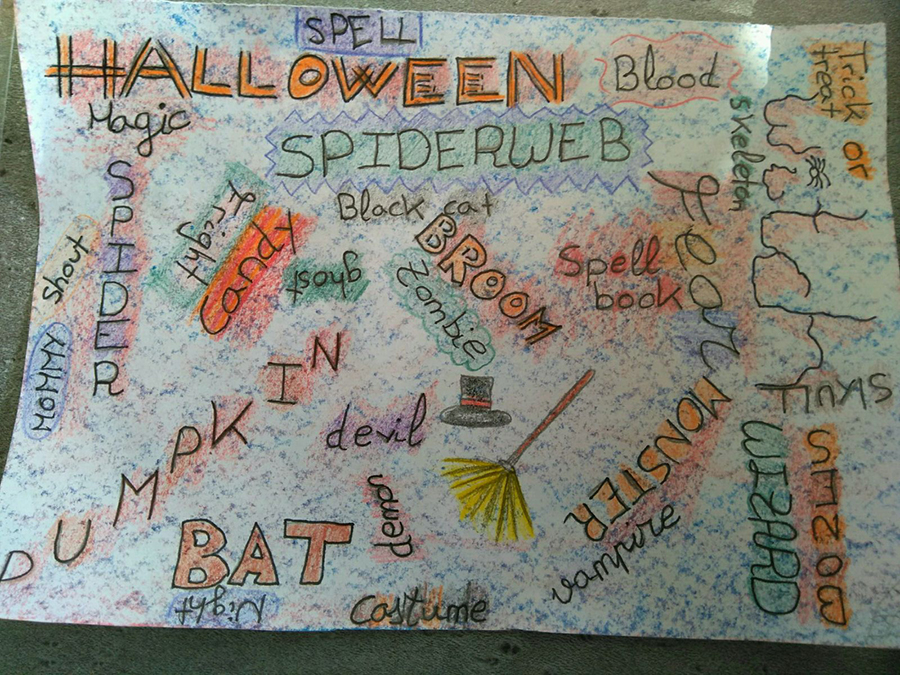 SPELL
HALLOWEEN
Blood
Trick or
treat
Magic
SPIDERWEB
Skeleton
Black cat
fright
candy
ghost
BROOM
Zombie
Spell
book
shout
SPIDER
MOMMY
PUMPKIN
devil
MONSTER
vampire
WIZARD
BAT
Night
Costume